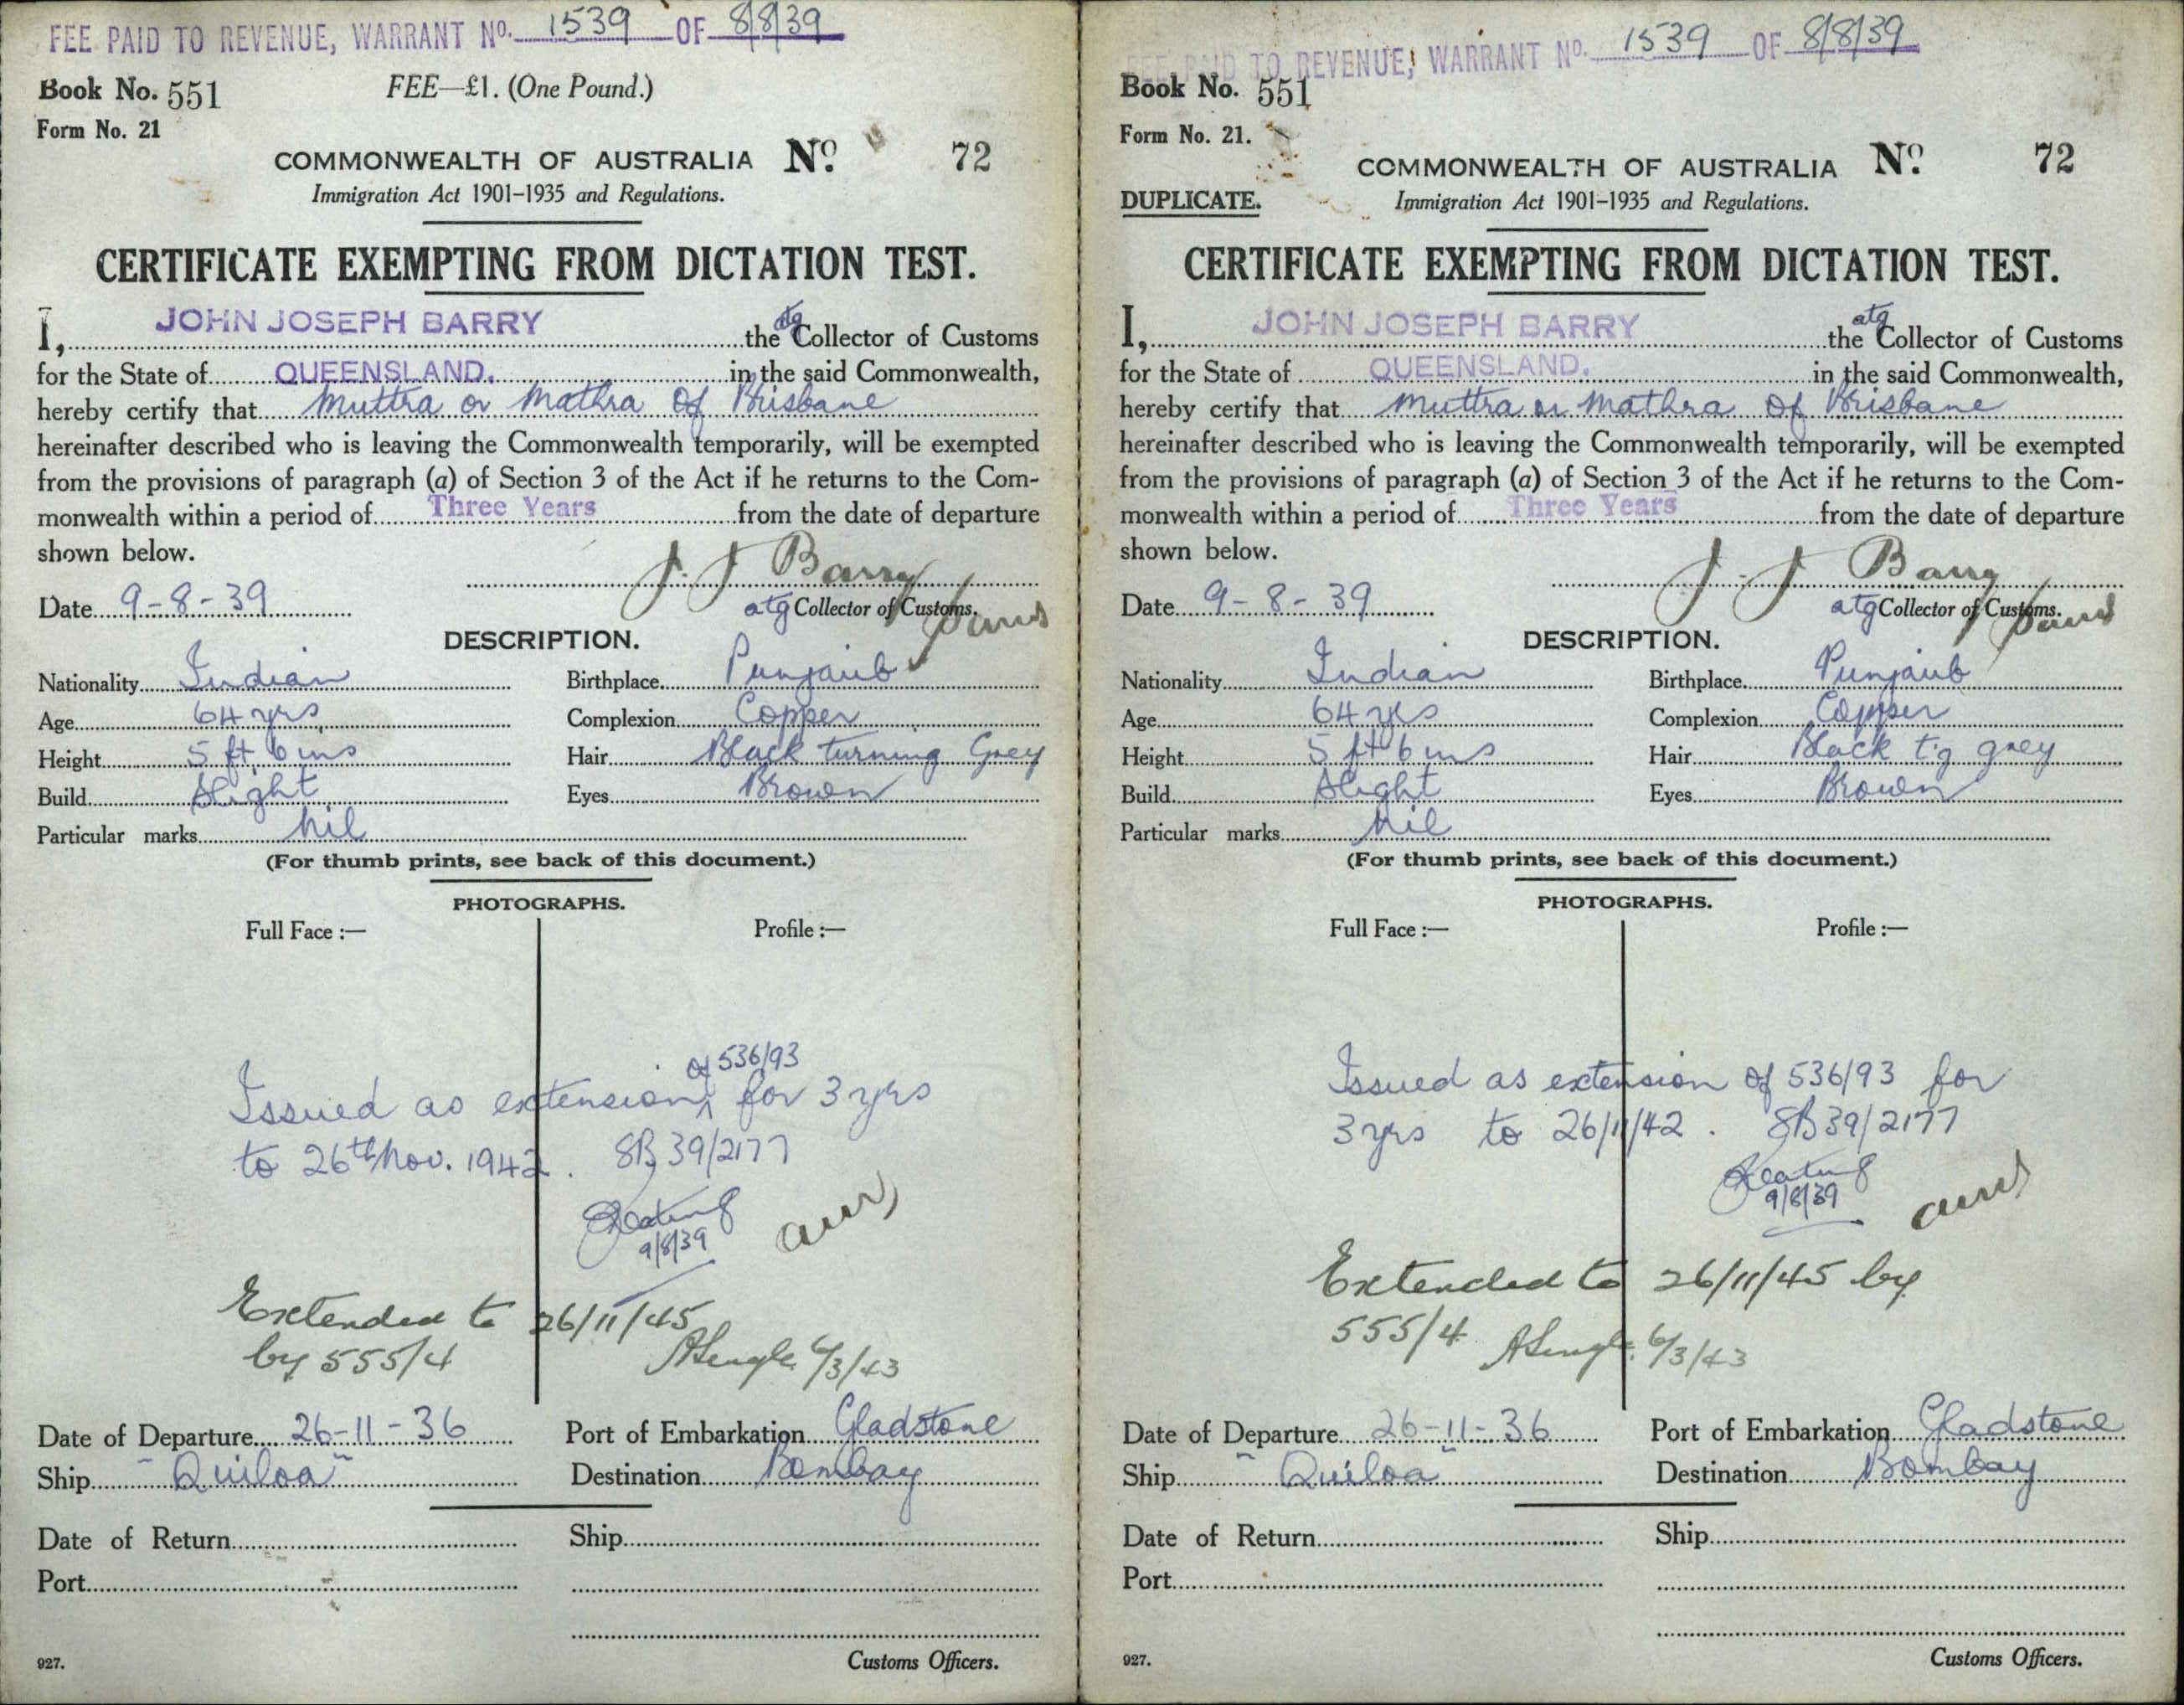 FEE PAID TO REVENUE, WARRANT No. 1539 OF 8/8/39
Book No. 551 FEE—£1. (One Pound.)
Form No. 21
COMMONWEALTH OF AUSTRALIA No. 72
Immigration Act 1901-1935 and Regulations.
CERTIFICATE EXEMPTING FROM DICTATION TEST.
I, JOHN JOSEPH BARRY the atg Collector of Customs
for the State of QUEENSLAND. in the said Commonwealth,
hereby certify that Muttra or Mathra of Brisbane
hereinafter described who is leaving the Commonwealth temporarily, will be exempted
from the provisions of paragraph (a) of Section 3 of the Act if he returns to the Com-
monwealth within a period of Three Years from the date of departure
shown below.
J. J Barry
Date 9-8-39 atg Collector of Customs.
DESCRIPTION.
Nationality Indian Birthplace Punjaub
Age 64 yrs Complexion Copper
Height 5 ft 6 ins Hair Black turning Grey
Build Slight Eyes Brown
Particular marks Nil
(For thumb prints, see back of this document.)
PHOTOGRAPHS.
Full Face :— Profile :—
of 536/93
Issued as extension for 3 yrs
to 26th Nov. 1942. 39/2177
9/8/39
Extended to 26/11/45
by 555/4 6/3/43
Date of Departure 26-11-36 Port of Embarkation Gladstone
Ship "Quiloa" Destination Bombay
Date of Return Ship
Port
927. Customs Officers.
FEE PAID TO REVENUE, WARRANT No. 1539 OF 8/8/39
Book No. 551
Form No. 21.
COMMONWEALTH OF AUSTRALIA No. 72
DUPLICATE. Immigration Act 1901-1935 and Regulations.
CERTIFICATE EXEMPTING FROM DICTATION TEST.
I, JOHN JOSEPH BARRY the atg Collector of Customs
for the State of QUEENSLAND. in the said Commonwealth,
hereby certify that Muttra or Mathra of Brisbane
hereinafter described who is leaving the Commonwealth temporarily, will be exempted
from the provisions of paragraph (a) of Section 3 of the Act if he returns to the Com-
monwealth within a period of Three Years from the date of departure
shown below.
J. J Barry
Date 9-8-39 atg Collector of Customs.
DESCRIPTION.
Nationality Indian Birthplace Punjaub
Age 64 yrs Complexion Copper
Height 5 ft 6 ins Hair Black t'g grey
Build Slight Eyes Brown
Particular marks Nil
(For thumb prints, see back of this document.)
PHOTOGRAPHS.
Full Face :— Profile :—
Issued as extension of 536/93 for
3 yrs to 26/11/42. 39/2177
9/8/39
Extended to 26/11/45 by
555/4 6/3/43
Date of Departure 26-11-36 Port of Embarkation Gladstone
Ship "Quiloa" Destination Bombay
Date of Return Ship
Port
927. Customs Officers.